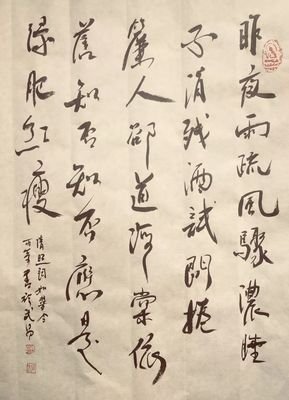 昨夜雨疏風驟濃睡
不消残酒試問捲
簾人卻道海棠依
舊知否知否應是
绿肥红瘦
清照詞如夢令
書於武昌